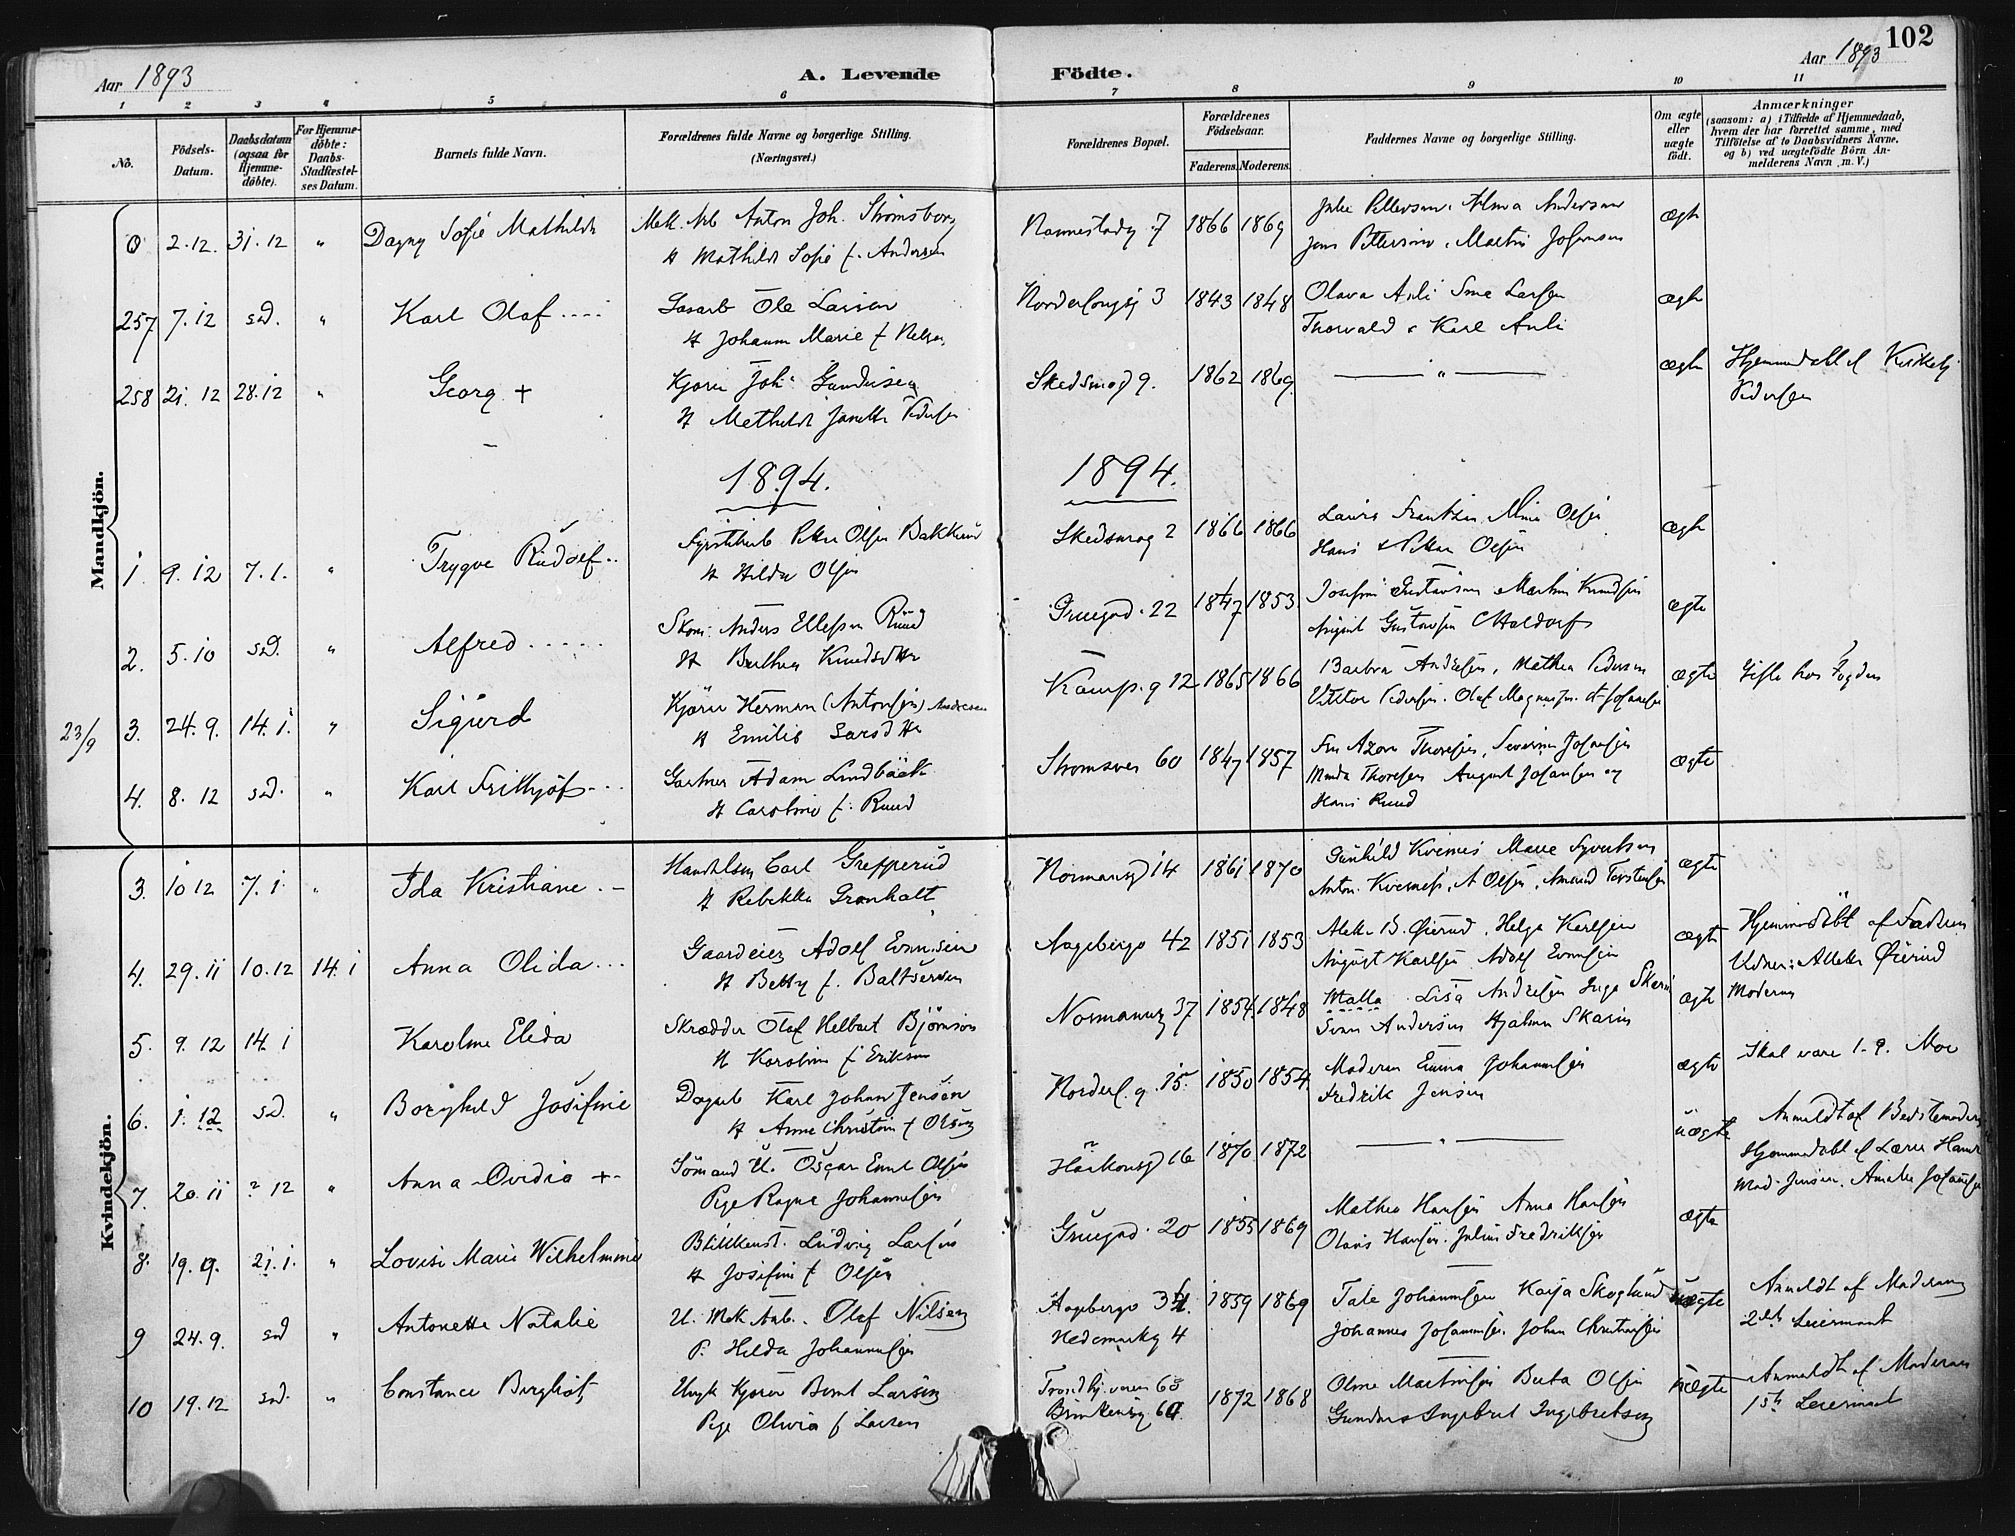 102
Aar 1893
A. Levende
Födte.
Aar 1893
1 2 3 4 5 6 7 8 9 10 11
No.
Födsels-
Datum.
Daabsdatum
(ogsaa for
Hjemme-
döbte).
For Hjemme-
döbte:
Daabs-
Stadfæstel-
ses Datum.
Barnets fulde Navn.
Forældrenes fulde Navne og borgerlige Stilling.
(Næringsvei.)
Forældrenes Bopæl.
Forældrenes
Födselsaar.
Faderens. Moderens.
Faddernes Navne og borgerlige Stilling.
Om ægte
eller
uægte
födt.
Anmærkninger
(saasom: a) i Tilfælde af Hjemmedaab,
hvem der har forrettet samme, med
Tilföielse af to Daabsvidners Navne,
og b) ved uægtefödte Börn An-
melderens Navn m. V.)
Mandkjön.
0 2.12. 31.12 " Dagny Sofie Mathilde
Mek. Arb Anton Joh. Strömsborg
H Mathilde Sofie f. Andersen
Nannestadg 7 1866 1869
Julie Pettersen, Alma Andersen
Jens Pettersen, Martin Johansen
ægte
257 7.12 sd. " Karl Olaf
Gasarb Ole Larsen
H Johanne Marie f Nelsen
Norderhougsg 3 1843 1848
Olava Auli Sme Larsen
Thorvald & Karl Auli
ægte
258 21.12 28.12 " Georg +
Kjører Joh. Gundersen
H Mathilde Janette Pedersen
Skedsmog 9. 1862 1869
— " —
ægte
Hjemmedöbt af
Pedersen
1894. 1894.
1. 9.12 7.1. " Trygve Rudolf
Fyrstikarb Petter Olsen Bakkerud
H Hilda Olsen
Skedsmog 2 1866 1866
Laura Frantzen Alma Olsen
Hans & Petter Olsen
ægte
2. 5.10 sd. " Alfred
Skom. Anders Ellefsen Ruud
H Berthea Knudsdtter
Gruegad. 22 1847 1853
Josefine Gustavsen Martin Knudsen
August Gustavsen
ægte
23/9 3. 24.9. 14.1. " Sigurd
Kjører Herman (Antonsen) Andresen
H Emilie Larsdtter
Kamp.g 12 1865 1866
Barbra Andresen, Mathea Pedersen
Viktor Pedersen. Olaf Magnusen
ægte
Gifte hos Fogden
4. 8.12 sd. " Karl Frithjof
Gartner Adam Lindbäck
H Caroline f. Ruud
Strömsvei 60 1847 1857
Thoresen, Severine Josefsen
Thoresen August Johansen og
Hans Ruud
ægte
Kvindekjön.
3. 10 12 7.1. " Ida Kristiane
Handelsm Carl Grefperud
H Rebekka Granholt
Normansg 14 1861 1870
Gunhild Kvernes Marie Syvertsen
Anton Kvernes, A Olsen, Amund Torstensen
ægte
4. 29.11 10.12 14.1 Anna Olida
Gaardeier Adolf Evensen
H Betty f. Baltzersen
Aagebergv 42 1851 1853
Alette B. Øierud, Helga Karlsen
August Karlsen Adolf Evensen
ægte
Hjemmedöbt af Faderen
Vidner: Alette Øierud
Moderen
5. 9.12 14.1 Karoline Elida
Skrædder Olaf Helbert Björnson
H Karoline f Eriksen
Normannsg 37 1854 1848
Malla Lisa Andresen Inga Skarin
Sven Andersen Hjalmar Skarin
ægte
6. 1.12 sd. " Borghild Josefine
Dagarb Karl Johan Jensen
H Anne Christine f Olsen
Norderh.g. 15. 1850 1854
Moderen Emma Johannesen
Fredrik Jensen
ægte
Skal være 1.9. Moe
7. 20.11 ? 12 " Anna Ovidia +
Sömand U. Oscar Emil Olsen
Pige Ragna Johannesen
Haakonsg 16 1870 1872
— " —
uægte
Anmeldt af Bedstemoderen
Hjemmedöbt af Lærer Hansen
Mad. Jensen. Amalie Johansen
8. 19.9. 21.1. " Lovise Marie Wilhelmine
Blikkensl. Ludvig Larsen
H Josefine f Olsen
Gruegad. 20 1855 1869
Mathea Hansen Anna Hansen
Olavis Hansen. Julius Fredriksen
ægte
9 24.9. sd " Antonette Natalie
U. Mek Arb. Olaf Nilsen
P. Hilda Johannesen
Aagebergv 34.
Hedemarksg 4
1859 1869
Tale Johannesen Kaja Skoglund
Johannes Johannesen Johan Christiansen
uægte
Anmeldt af Moderen
2det Leiermaal
10 19.12 sd. " Constance Bergliot
Ungk Kjører Bernt Larsen
Pige Olivia f Larsen
Trondhj.veien 63
Brinkenssg 64
1872 1868
Oline Martinsen Berta Olsen
Gunders Ingebret Ingebretsen
uægte
Anmeldt af Moderen
1ste Leiermaal